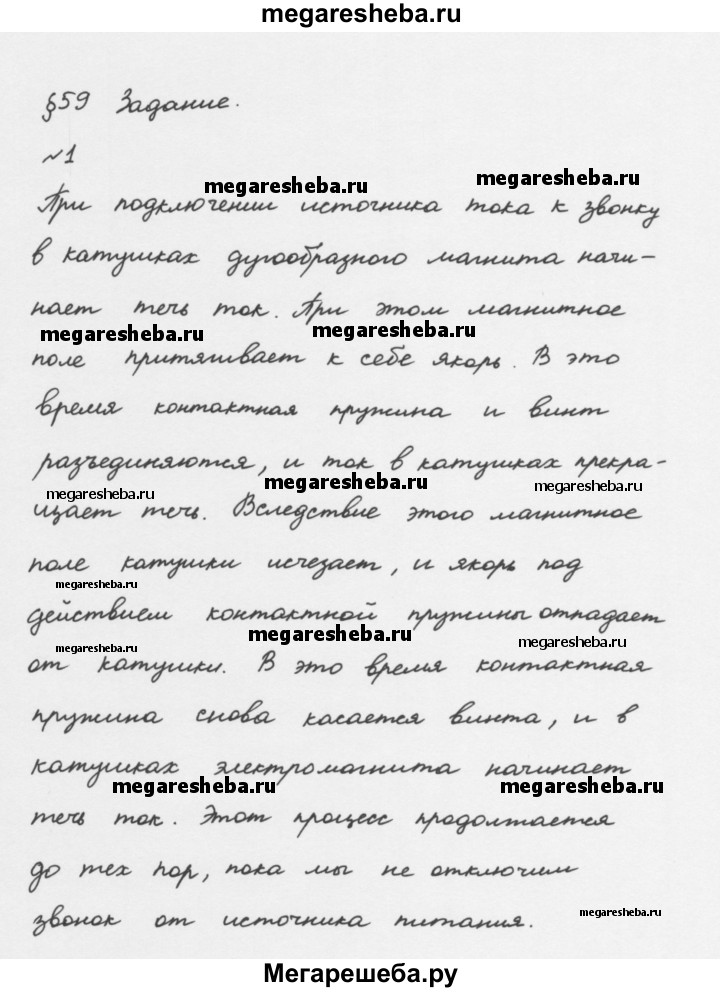 megaresheba.ru
§59 Задание.
№1
megaresheba.ru
megaresheba.ru
При подключении источника тока к звонку
в катушках дугообразного магнита начи-
нает течь ток. При этом магнитное
megaresheba.ru
megaresheba.ru
поле притягивает к себе якорь. В это
время контактная пружина и винт
разъединяются, и ток в катушках прекра-
megaresheba.ru
megaresheba.ru
megaresheba.ru
щает течь. Вследствие этого магнитное
поле катушки исчезает, и якорь под
megaresheba.ru
действием контактной пружины отпадает
megaresheba.ru
megaresheba.ru
megaresheba.ru
от катушки. В это время контактная
пружина снова касается винта, и в
катушках электромагнита начинает
megaresheba.ru
megaresheba.ru
течь ток. Этот процесс продолтается
до тех пор, пока мы не отключим
звонок от источника питания.
megaresheba.ru
Мегарешеба.ру